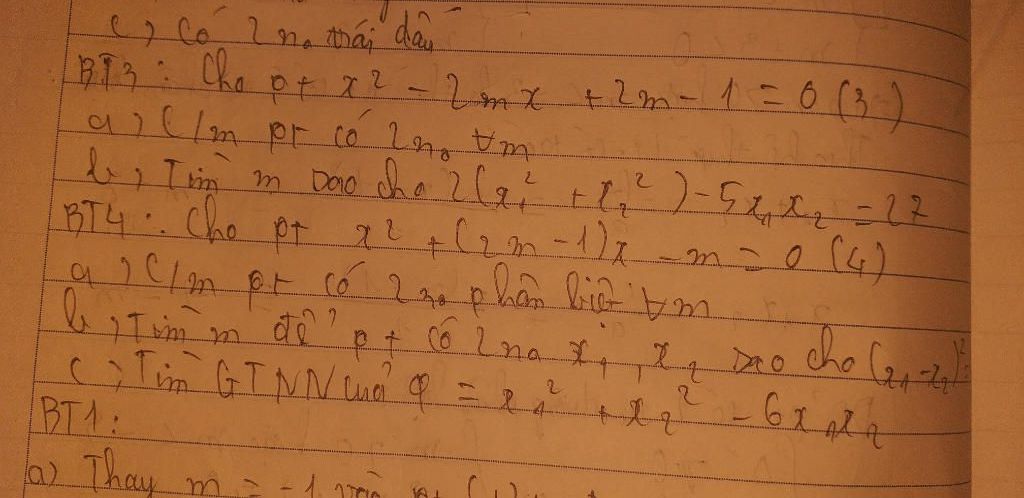 c) Có 2 n₀ trái dấu
BT3: Cho pt x² - 2mx + 2m - 1 = 0 (3)
a) C/m pt có 2 n₀ ∀m
b) Tìm m sao cho 2(x₁² + x₂²) - 5x₁x₂ = 27
BT4: Cho pt x² + (2m - 1)x - m = 0 (4)
a) C/m pt có 2 n₀ phân biệt ∀m
b) Tìm m để pt có 2 n₀ x₁, x₂ sao cho (x₁ - x₂)²
c) Tìm GTNN của = x₁² + x₂² - 6x₁x₂
BT1:
a) Thay m = -1 vào pt (1)